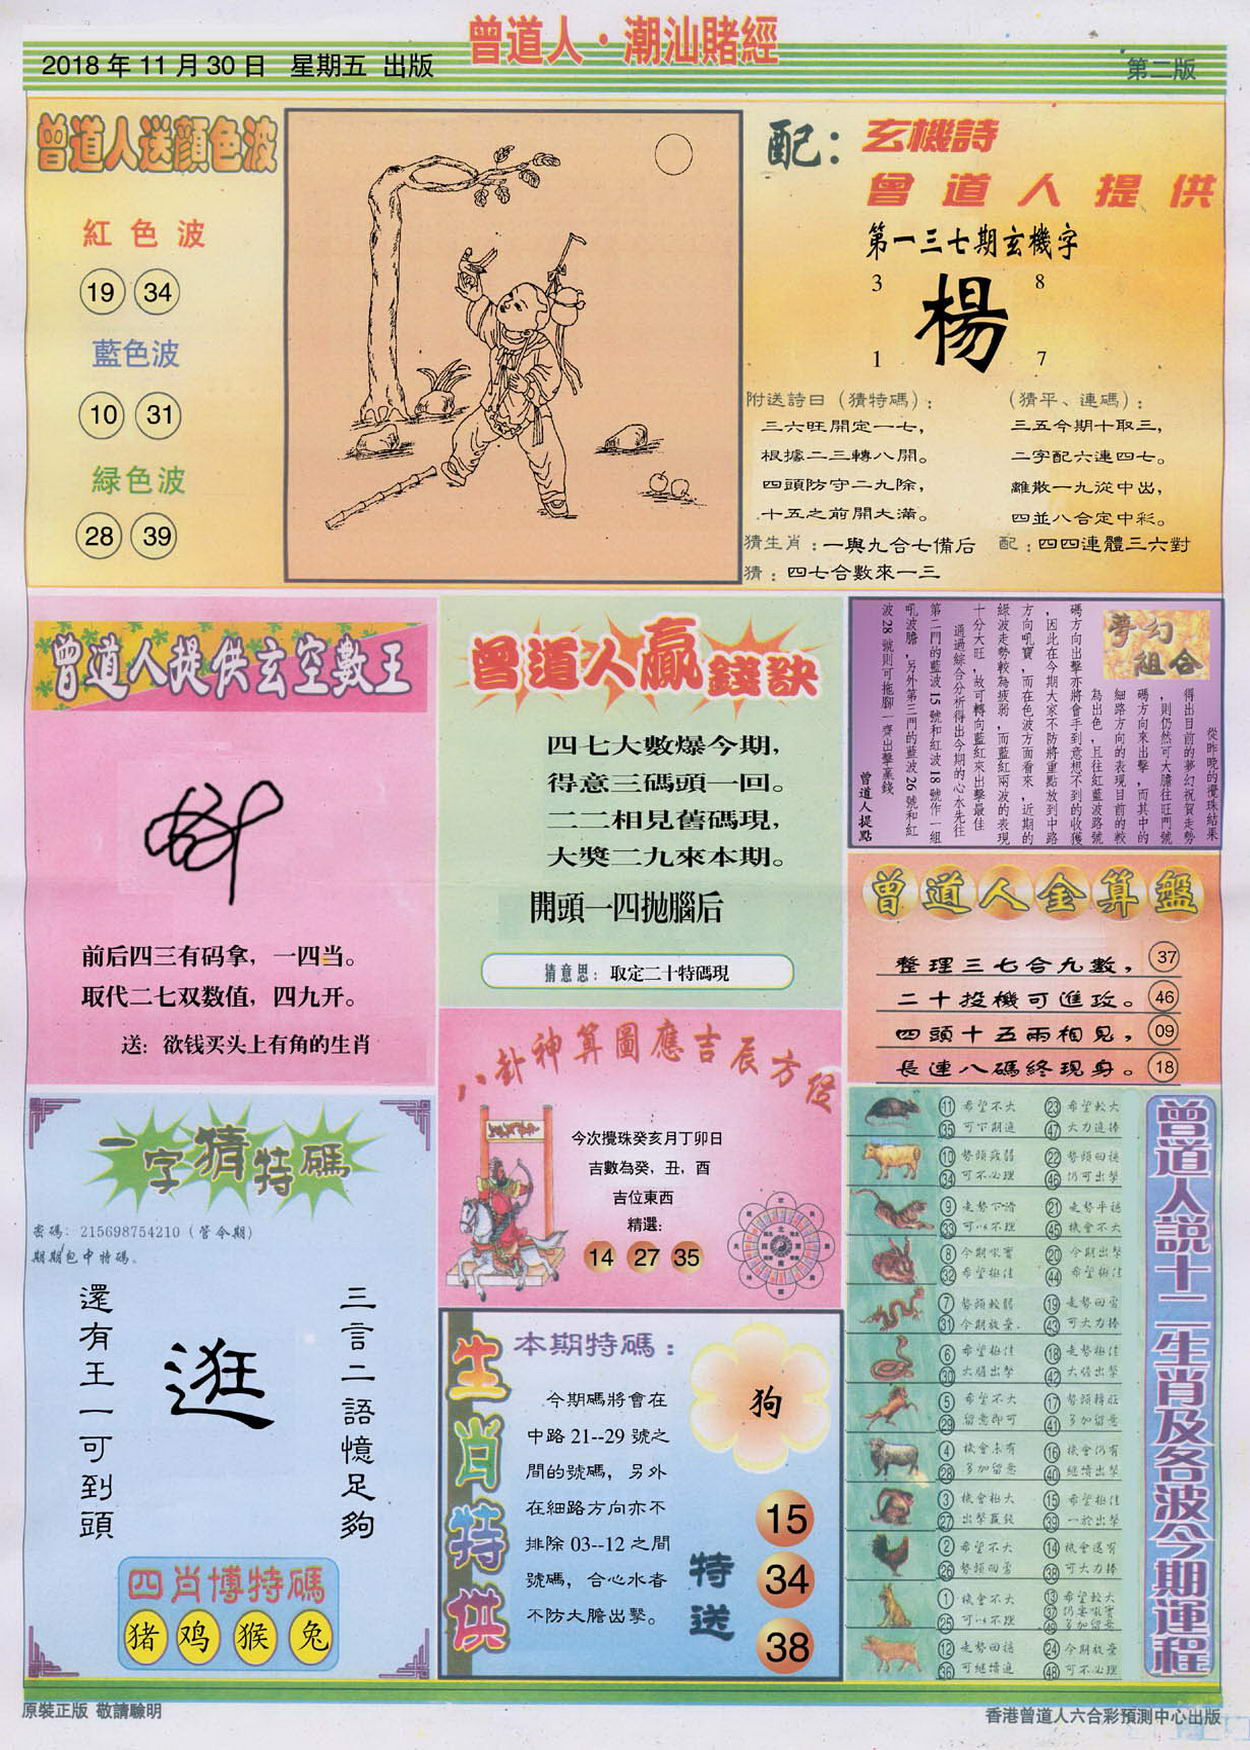 曾道人·潮汕賭經
2018 年 11 月 30 日 星期五 出版
第二版
曾道人送顏色波
紅色波
19 34
藍色波
10 31
緑色波
28 39
配：玄機詩
曾道人提供
第一三七期玄機字
3 8
楊
1 7
附送詩曰（猜特碼）：
三六旺開定一七，
根據二三轉八開。
四頭防守二九除，
十五之前開大滿。
（猜平、連碼）：
三五今期十取三，
二字配六連四七。
離散一九從中出，
四並八合定中彩。
猜生肖：一與九合七備后
配：四四連體三六對
猜：四七合數來一三
曾道人提供玄空數王
前后四三有码拿，一四当。
取代二七双数值，四九开。
送：欲钱买头上有角的生肖
曾道人贏錢訣
四七大數爆今期，
得意三碼頭一回。
二二相見舊碼現，
大獎二九來本期。
開頭一四抛腦后
猜意思：取定二十特碼現
夢幻
組合
從昨晚的攪珠結果
得出目前的夢幻祝賀走勢
，則仍然可大膽往旺門號
碼方向來出擊，而其中的
細路方向的表現目前的較
為出色，且往紅藍波路號
碼方向出擊亦將會手到意想不到的收獲
，因此在今期大家不防將重點放到中路
方向吼寶，而在色波方面看來，近期的
綠波走勢較為疲弱，而藍紅兩波的表現
十分大旺，故可轉向藍紅來出擊最佳
通過綜合分析得出今期的心水先往
第二門的藍波 15 號和紅波 18 號作一組
吼波膽，另外第三門的藍波 26 號和紅
波 28 號則可拖腳一齊出擊羸錢
曾道人提點
曾道人金算盤
整理三七合九數，37
二十投機可進攻。46
四頭十五兩相見，09
長連八碼終現身。18
八卦神算圖應吉辰方位
今次攪珠癸亥月丁卯日
吉數為癸，丑，酉
吉位東西
精選：
14 27 35
一字猜特碼
密碼：215698754210（管今期）
期期包中特碼。
三言二語憶足夠
逛
還有王一可到頭
四肖博特碼
猪 鸡 猴 兔
生肖特供
本期特碼：
狗
今期碼將會在
中路 21--29 號之
間的號碼，另外
在細路方向亦不
排除 03--12 之間
號碼，合心水者
不防大膽出擊。
特送
15
34
38
曾道人說十二生肖及各波今期運程
11 希望不大 23 希望較大
35 可下期追 47 大力追捧
10 勢頭疲弱 22 勢頭回穩
34 可不必理 46 仍可出擊
9 走勢下滑 21 走勢平穩
33 可以不理 45 機會不大
8 今期吼寶 20 今期出擊
32 希望極佳 44 希望極佳
7 勢頭較弱 19 走勢回雪
31 今期放棄 43 可大力捧
6 希望極佳 18 走勢極佳
30 大膽出擊 42 大膽出擊
5 希望不大 17 勢頭轉旺
29 留意即可 41 多加留意
4 機會未有 16 機會仍有
28 多加留意 40 繼續出擊
3 機會極大 15 希望極佳
27 出擊羸錢 39 一於出擊
2 希望不大 14 機會還有
26 勢頭回雪 38 可大力捧
1 機會不大 13 希望較大
25 可以不理 37 仍要吼寶
49 多加留意
12 走勢回穩 24 今期放棄
36 可繼續追 48 可不必理
原裝正版 敬請驗明
香港曾道人六合彩預測中心出版